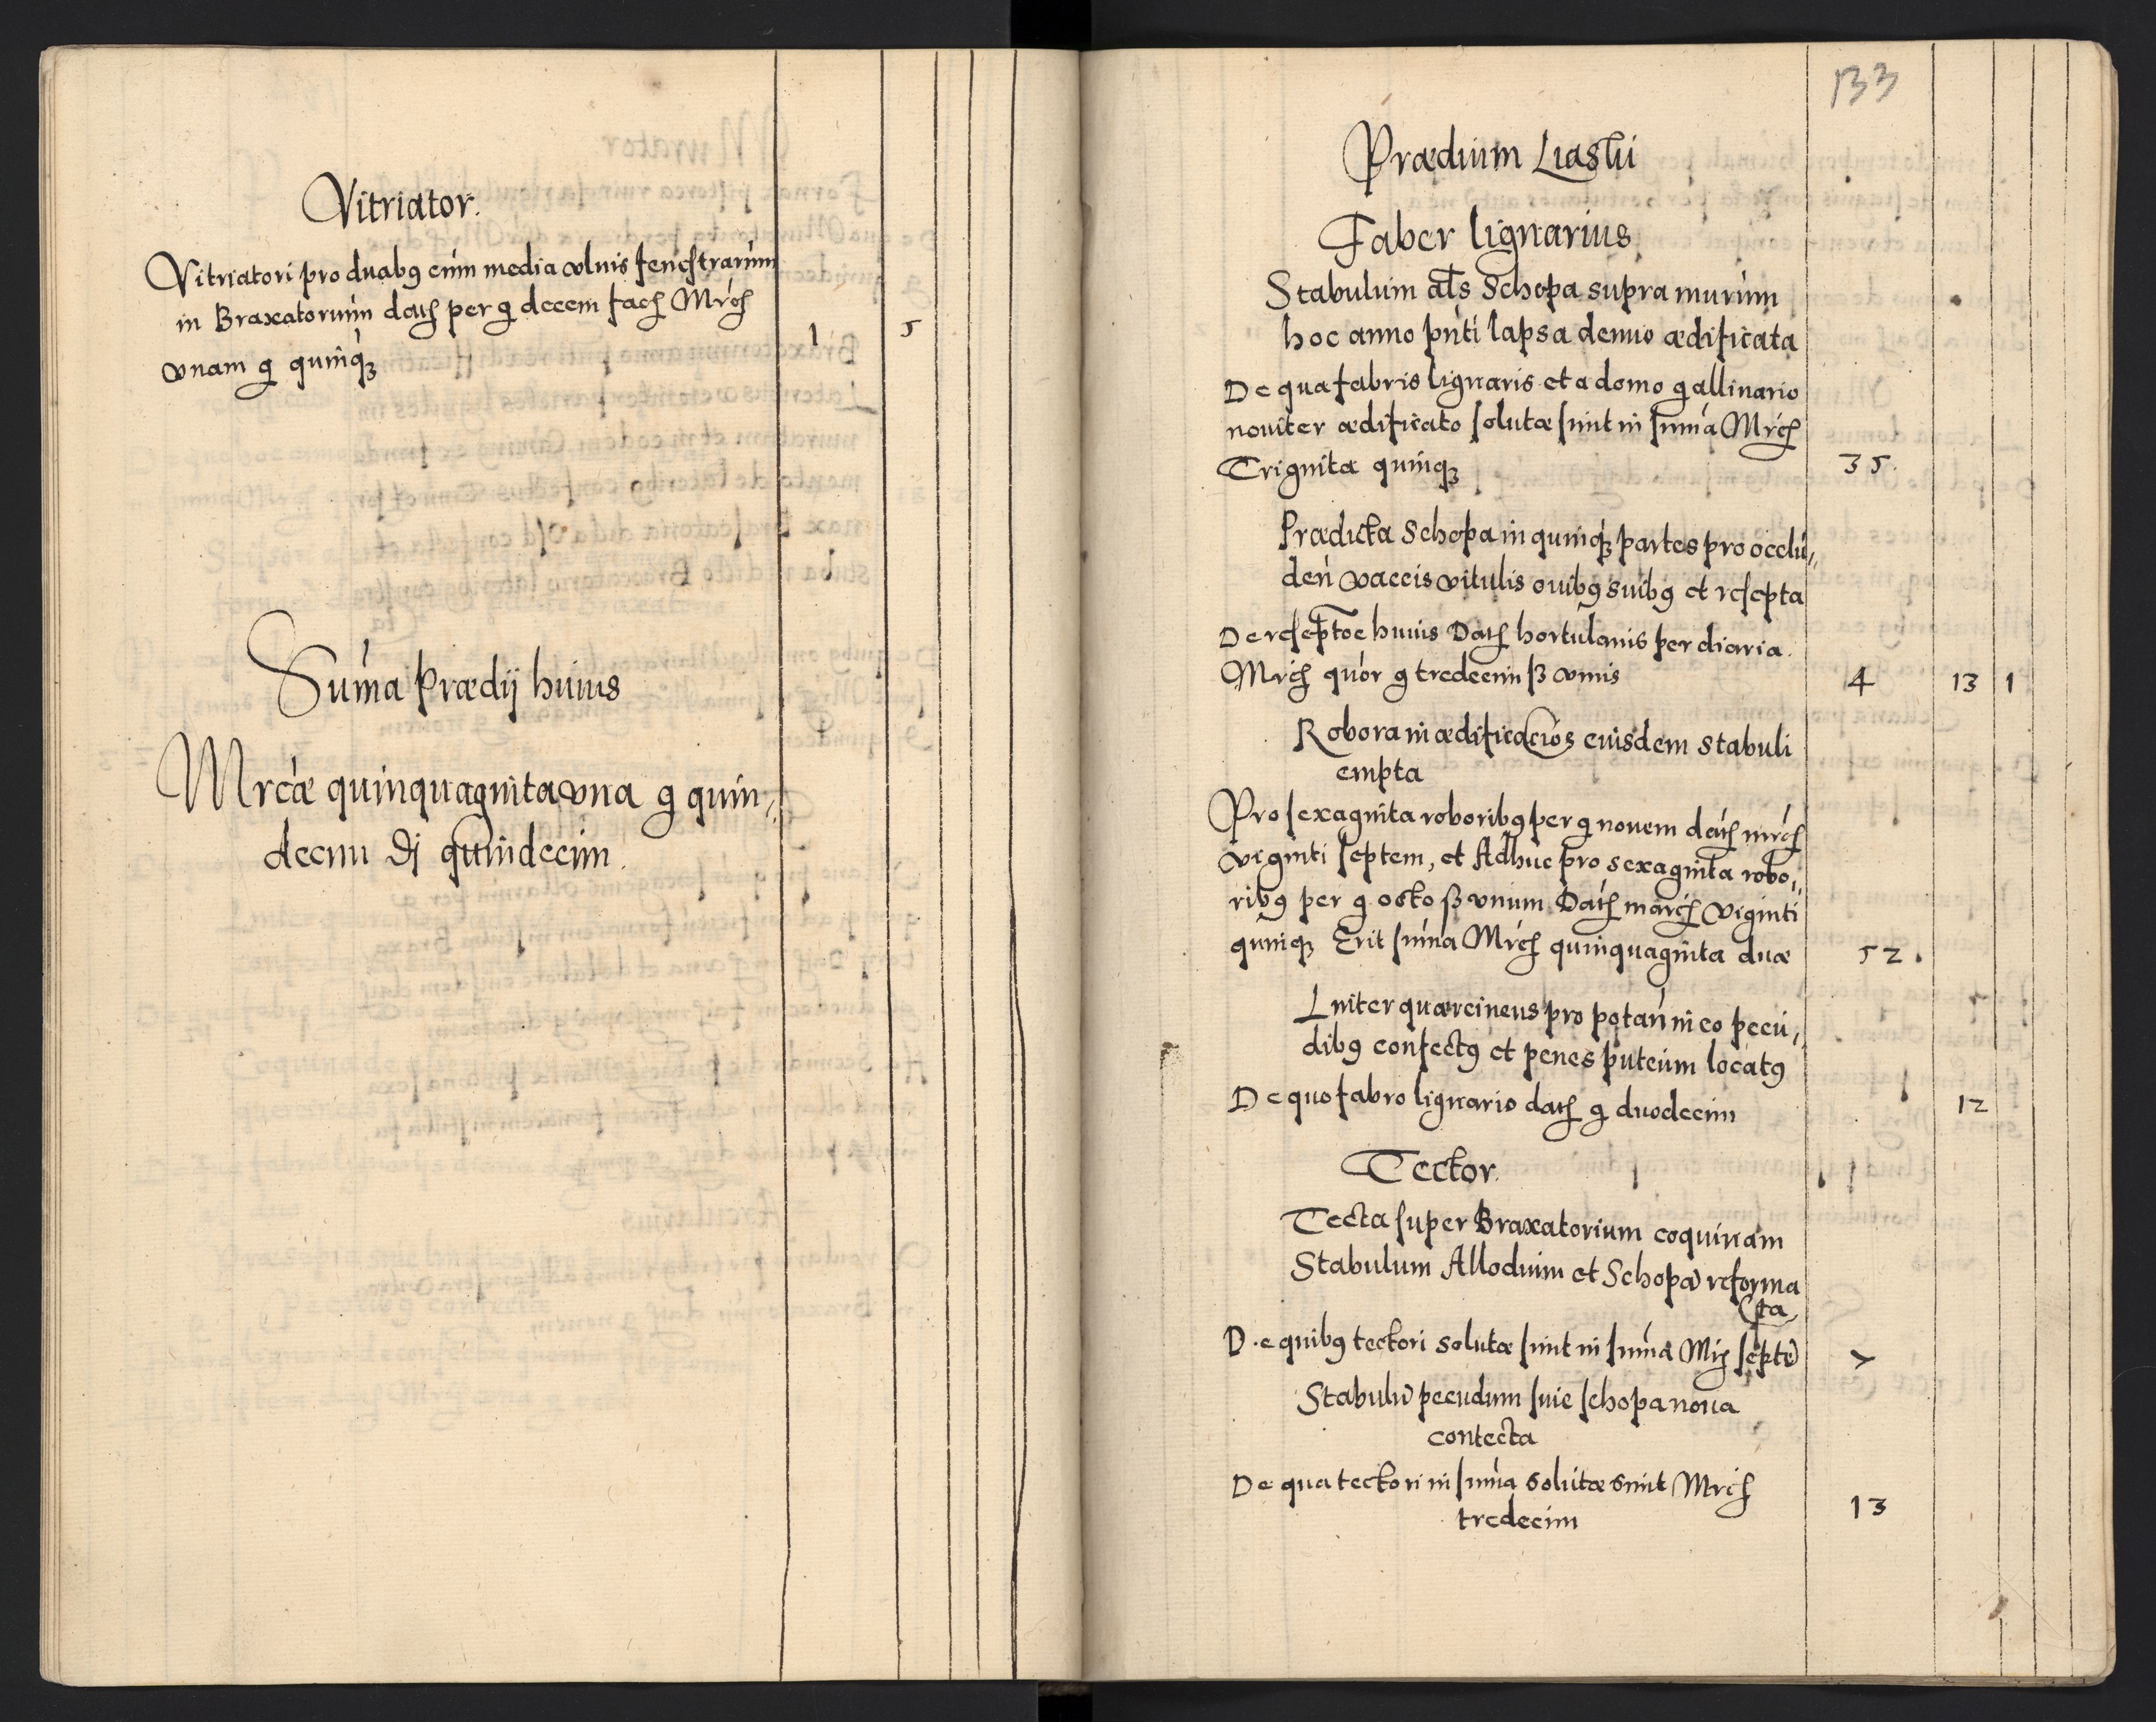 Vitriator.
Vitriatori pro duabꝯ cum media ulnis fenestrarum
in Braxatorium datꝭ per g decem facꝭ Mrcꝭ
vnam g quinqꝫ 1 5
Suma Prædij huius
Mrcæ quinquaginta vna g quin,,
decim quindecim.
133
Prædium Liasky
Faber lignarius
Stabulum als Schopa supra murum
hoc anno pnti lapsa denuo ædificata
De qua fabris lignaris et a domo gallinario
nouiter ædificato solutæ sunt in suma Mrcꝭ
Triginta quinqꝫ 35.
Prædicta Schopa in quinqꝫ partes pro occlu,,
den vaccis vitulis ouibꝯ suibꝯ et resepta
De reseptoe huius Datꝭ hortulanis per diaria.
Mrcꝭ quor g tredecim ß vnus 4 13 1
Robora in ædificacios eiusdem stabuli
empta
Pro sexaginta roboribꝯ per g nouem datꝭ mrcꝭ
viginti septem, et Adhuc pro sexaginta robo,,
ribꝯ per g octo ß vnum Datꝭ marcꝭ viginti
quinqꝫ Erit suma Mrcꝭ quinquaginta duæ 52.
Linter quærcineus pro potan in eo pecu,,
dibꝯ confectꝯ et penes puteum locatꝯ
De quo fabro lignario datꝭ g duodecim 12
Tector.
Tecta super Braxatorium coquinam
Stabulum Allodium et Schopa reforma
(ta
De quibꝯ tectori solutæ sunt in suma Mrꝭ septe 7
Stabulu pecudum siue schopa noua
contecta
De qua tectori in suma solutæ sunt Mrcꝭ
tredecim 13